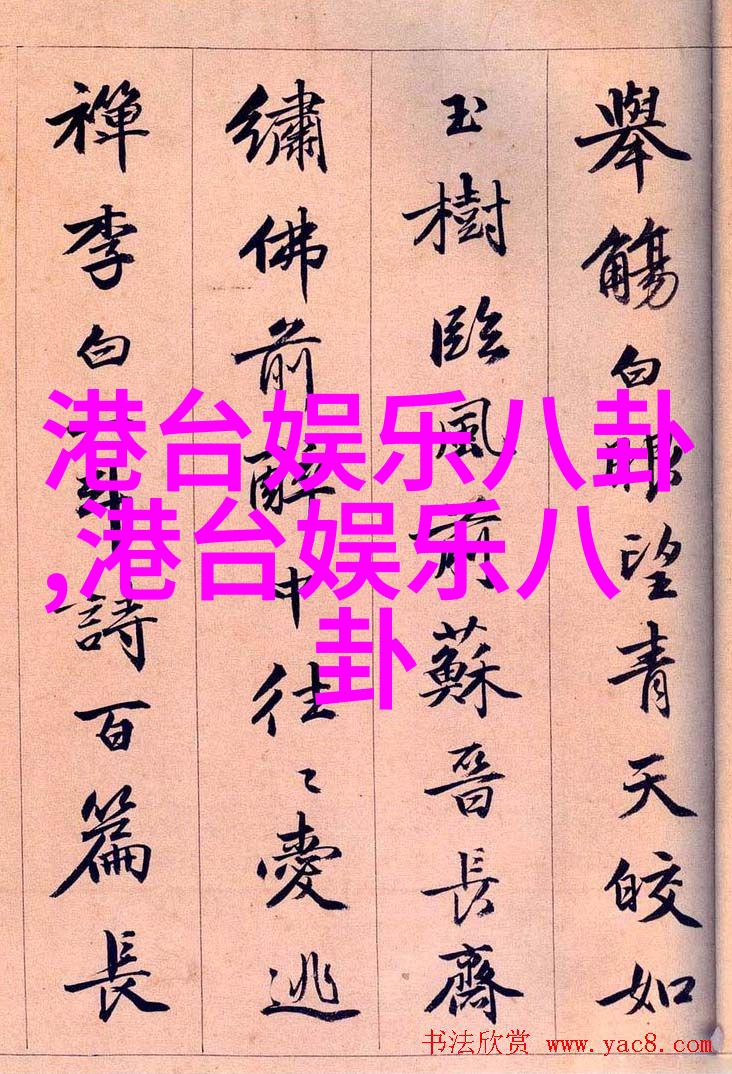 舉觴白眼望青天皎如
玉樹臨風前蘇晉長齋
繡佛前醉中往〻愛逃
禪李白一斗詩百篇長
港台娱乐八卦
,港台娱乐八
卦
书法欣赏 www.yac8.com